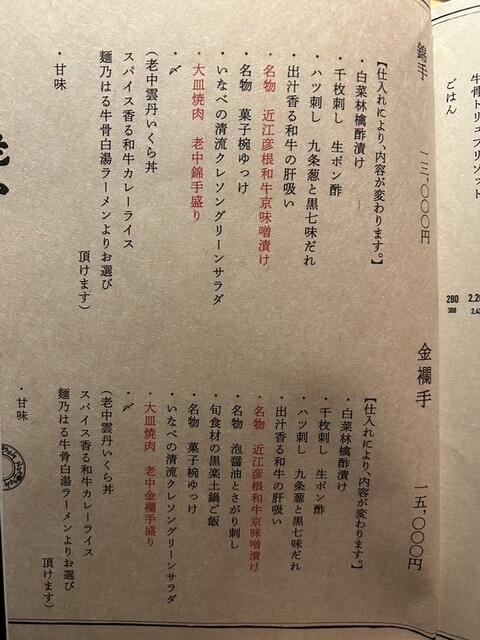 牛骨トリュフリゾット
ごはん
2,20
280
308
錦手
一三,〇〇〇円
【仕入れにより、内容が変わります。】
・白菜林檎酢漬け
・千枚刺し　生ポン酢
・ハツ刺し　九条葱と黒七味だれ
・出汁香る和牛の肝吸い
・名物　近江彦根和牛京味噌漬け
・名物　菓子椀ゆっけ
・いなべの清流クレソングリーンサラダ
・大皿焼肉　老中錦手盛り
・〆
（老中雲丹いくら丼
スパイス香る和牛カレーライス
麺乃はる牛骨白湯ラーメンよりお選び
頂けます）
・甘味
金襴手
一五,〇〇〇円
【仕入れにより、内容が変わります。】
・白菜林檎酢漬け
・千枚刺し　生ポン酢
・ハツ刺し　九条葱と黒七味だれ
・出汁香る和牛の肝吸い
・名物　近江彦根和牛京味噌漬け
・名物　泡醤油とさがり刺し
・旬食材の黒楽土鍋ご飯
・名物　菓子椀ゆっけ
・いなべの清流クレソングリーンサラダ
・大皿焼肉　老中金襴手盛り
・〆
（老中雲丹いくら丼
スパイス香る和牛カレーライス
麺乃はる牛骨白湯ラーメンよりお選び
頂けます）
・甘味